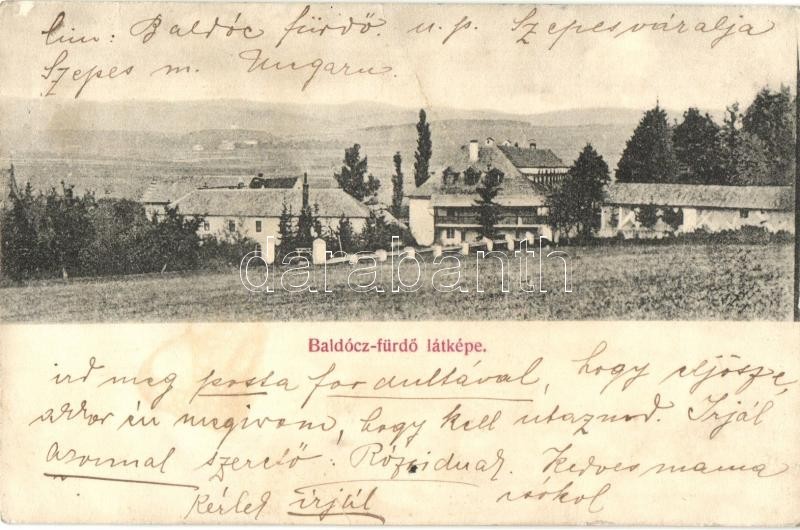 Cim: Baldóc fürdő. u. p. Szepesváralja
Szepes m. Ungarn.
darabanth
Baldócz-fürdő látképe.
ird meg posta fordultával, hogy eljösz e,
akkor én megirom, hogy kell utaznod. Irjál
azonnal szerető Rózsidnak. Kedves mama
kérlek irjál csókol